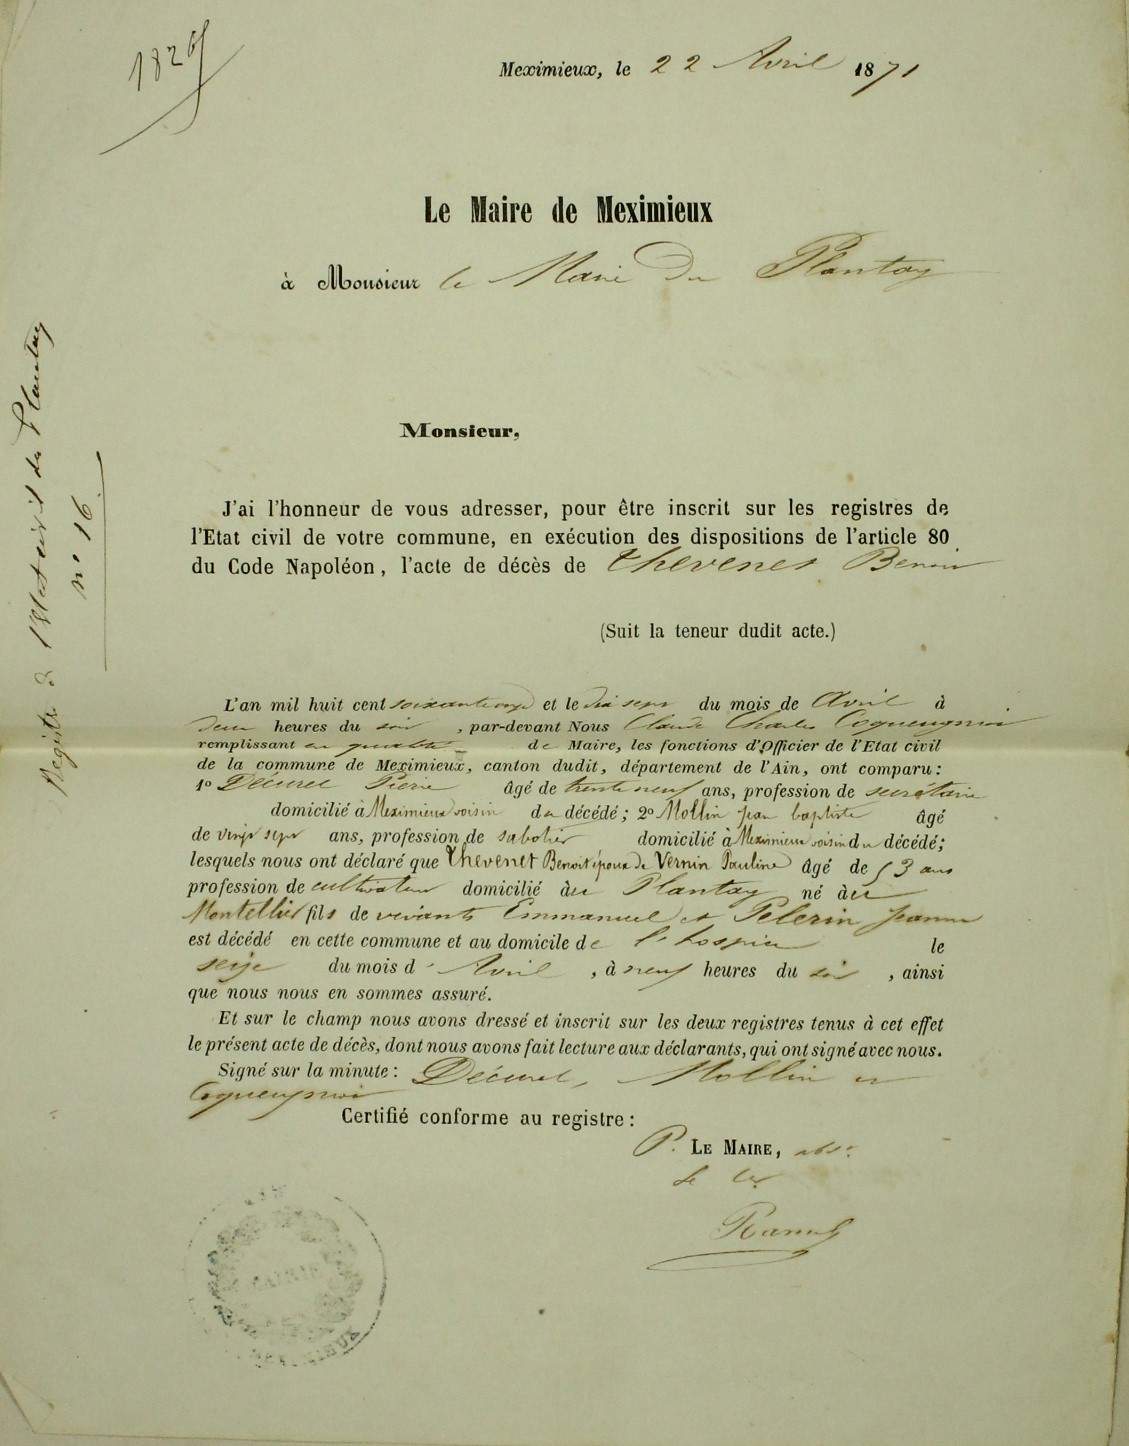 Meximieux, le 22 Avril 1871
Le Maire de Meximieux
à Monsieur le Maire Du Plantay
Registre de l'Etat civil du Plantay
n° 16
Monsieur,
J'ai l'honneur de vous adresser, pour être inscrit sur les registres de
l'Etat civil de votre commune, en exécution des dispositions de l'article 80
du Code Napoléon, l'acte de décès de thevenet Benoit
(Suit la teneur dudit acte.)
L'an mil huit cent soixante onze et le dix sept du mois de Avril à
deux heures du soir, par-devant Nous Claude Charles
remplissant en qualité de Maire, les fonctions d'Officier de l'Etat civil
de la commune de Meximieux, canton dudit, département de l'Ain, ont comparu:
1° Décurel Pierre âgé de trente neuf ans, profession de secrétaire
domicilié à Meximieux voisin du décédé; 2° Mollin jean baptiste âgé
de vingt sept ans, profession de sabotier domicilié à Meximieux voisin du décédé;
lesquels nous ont déclaré que thevenet Benoit époux de Vernin Pauline âgé de 53 ans
profession de cultivateur domicilié au Plantay né au
Montellier fils de vivants Emmanuel et Pelerin jeanne
est décédé en cette commune et au domicile de l'hospice le
seize du mois d'Avril, à neuf heures du soir, ainsi
que nous nous en sommes assuré.
Et sur le champ nous avons dressé et inscrit sur les deux registres tenus à cet effet
le présent acte de décès, dont nous avons fait lecture aux déclarants, qui ont signé avec nous.
Signé sur la minute: Décurel, Mollin et
Certifié conforme au registre:
P. LE MAIRE, abst
MAIRIE